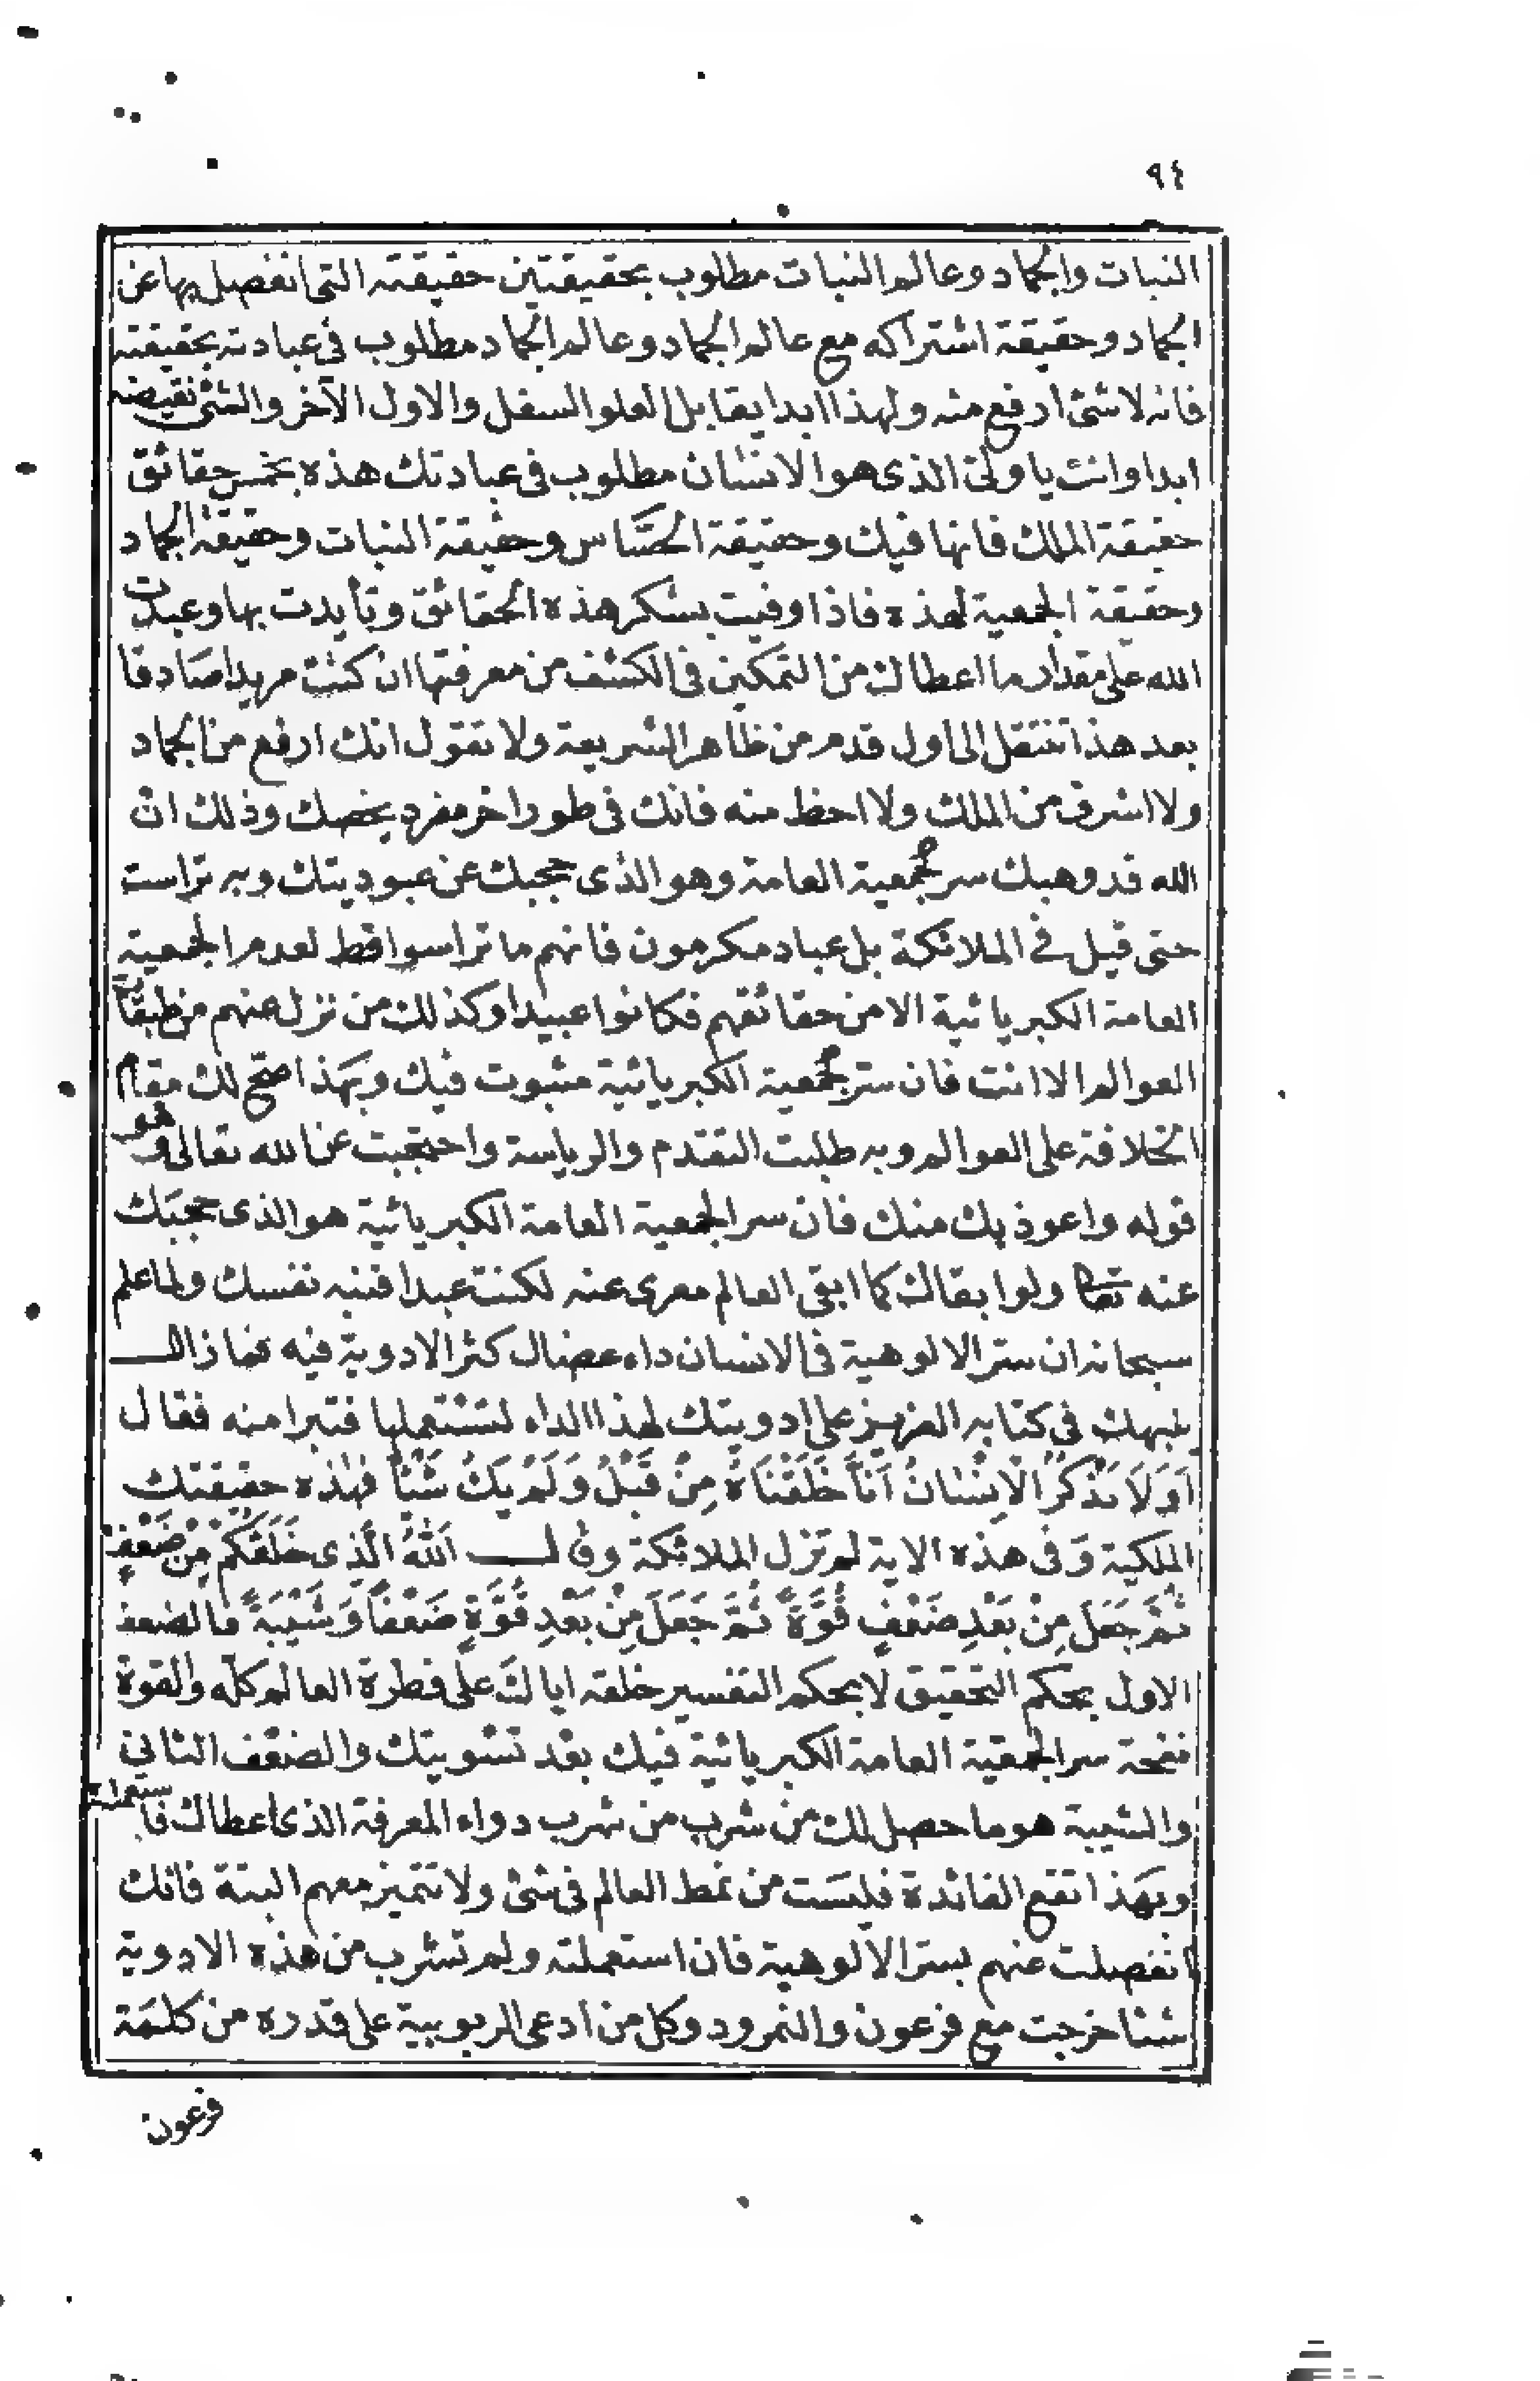 ٩٤
النبات والجماد وعالم النبات مطلوب بحقيقتين حقيقته التي انفصل بها عن
الجماد وحقيقة اشتراكه مع عالم الجماد وعالم الجماد مطلوب في عبادته بحقيقته
فانه لا شئ ارفع منه ولهذا ابدا يقابل العلو السفل والاول الآخر والشئ نقيضه
ابدا وانت يا ولي الذى هو الانسان مطلوب في عبادتك هذه بخمس حقائق
حقيقة الملك فانها فيك وحقيقة الحساس وحقيقة النبات وحقيقة الجماد
وحقيقة الجمعية لهذه فاذا وفيت بشكر هذه الحقائق وتأيدت بها وعبدت
الله على مقدار ما اعطاك من التمكين في الكشف من معرفتها ان كنت مريدا صادقا
بعد هذا تنتقل الى اول قدم من ظاهر الشريعة ولا تقول انك ارفع من الجماد
ولا اشرف من الملك ولا احظ منه فانك في طور اخر مفرد يخصك وذلك ان
الله قد وهبك سر جمعية العامة وهو الذى حجبك عن عبوديتك وبه تراست
حتى قيل في الملائكة بل عباد مكرمون فانهم ما تراسوا قط لعدم الجمعية
العامة الكبريائية الا من حقائقهم فكانوا عبيدا وكذلك من نزل عنهم من طبقات
العوالم الا انت فان ستر جمعية الكبريائية مثبوت فيك وبهذا صح لك مقام
الخلافة على العوالم وبه طلبت التقدم والرياسة واحتجبت عن الله تعالى وهو
قوله واعوذ بك منك فان سر الجمعية العامة الكبريائية هو الذى حجبك
عنه تعالى ولو ابقاك كما ابقى العالم معرى عنه لكنت عبدا فنبه نفسك ولما علم
سبحانه ان ستر الالوهية في الانسان داء عضال كثر الادوية فيه فما زال
ينبهك في كتابه العزيز على ادويتك لهذا الداء لتستعملها فتبرا منه فقال
اَوَلَا يَذْكُرُ الْاِنْسَانُ اَنَّا خَلَقْنَاهُ مِنْ قَبْلُ وَلَمْ يَكُ شَيْئاً فهذه حقيقتك
الملكية وفى هذه الاية لم تزل الملائكة وقال اَللّٰهُ الَّذى خَلَقَكُمْ مِنْ ضَعْفٍ
ثُمَّ جَعَلَ مِنْ بَعْدِ ضَعْفٍ قُوَّةً ثُمَّ جَعَلَ مِنْ بَعْدِ قُوَّةٍ ضَعْفاً وَشَيْبَةً فالضعف
الاول بحكم التحقيق لا بحكم التفسير خلقه اياك على فطرة العالم كله والقوة
نفخة سر الجمعية العامة الكبريائية فيك بعد تسويتك والضعف الثاني
والشيبة هو ما حصل لك من شرب من شرب دواء المعرفة الذى اعطاك فا
وبهذا تقع الفائدة فليست من نمط العالم فى شئ ولا تتميز معهم البتة فانك
انفصلت عنهم بستر الالوهية فان استعملته ولم تشرب من هذه الادوية
شيئا خرجت مع فرعون والنمرود وكل من ادعى الربوبية على قدره من كلمة
فرعون